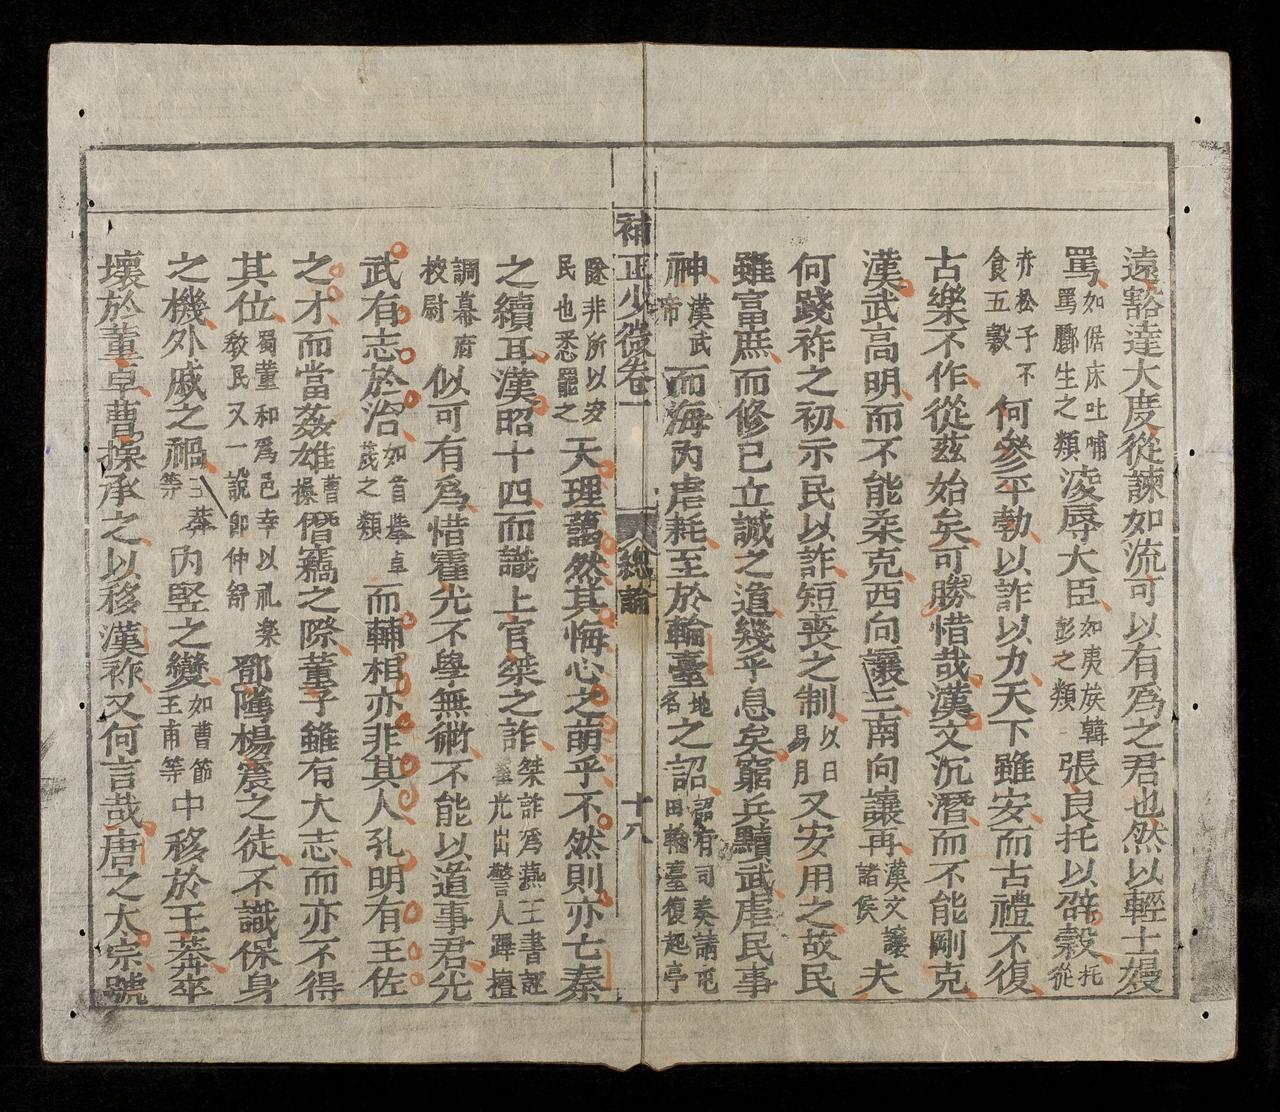 遠豁達大度從諫如流可以有爲之君也然以輕士嫚
罵如倨床吐哺罵酈生之類凌辱大臣如夷族韓彭之類張良托以辟穀托從
赤松子不食五穀何參平勃以詐以力天下雖安而古禮不復
古樂不作從茲始矣可勝惜哉漢文沉潛而不能剛克
漢武高明而不能柔克西向讓三南向讓再漢文讓諸侯夫
何踐祚之初示民以詐短喪之制以日易月又安用之故民
雖富庶而修己立誠之道幾乎息矣窮兵黷武虐民事
神漢武祠帝而海內虗耗至於輪臺地名之詔詔有司奏請屯田輪臺復起亭
隧非所以安民也悉罷之天理藹然其悔心之萌乎不然則亦亡秦
補正少微卷一 總論 十八
之續耳漢昭十四而識上官桀之詐桀詐爲燕王書誣霍光出警人蹕擅
調幕府校尉似可有爲惜霍光不學無術不能以道事君光
武有志於治如首擧卓茂之類而輔相亦非其人孔明有王佐
之才而當姦雄曹操僭竊之際董子雖有大志而亦不得
其位蜀董和爲邑幸以礼樂教民又一說卽仲舒鄧隲楊震之徒不識保身
之機外戚之禍王莽等內竪之變如曹節王甫等中移於王莽卒
壞於董卓曹操承之以移漢祚又何言哉唐之太宗號